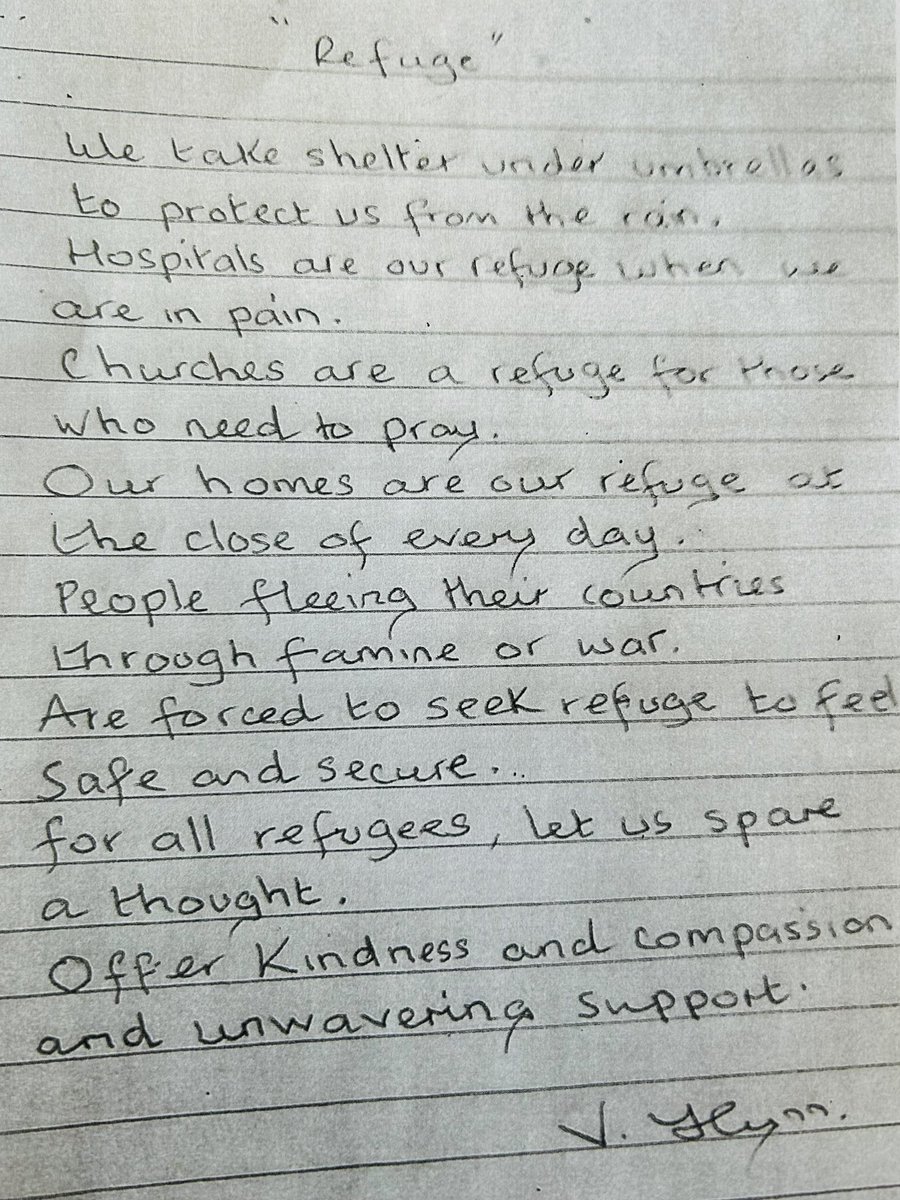 "Refuge"
We take shelter under umbrellas
to protect us from the rain.
Hospitals are our refuge when we
are in pain.
Churches are a refuge for those
who need to pray.
Our homes are our refuge at
the close of every day.
People fleeing their countries
through famine or war.
Are forced to seek refuge to feel
Safe and secure...
for all refugees, let us spare
a thought.
Offer Kindness and compassion
and unwavering support.
V. Flynn.